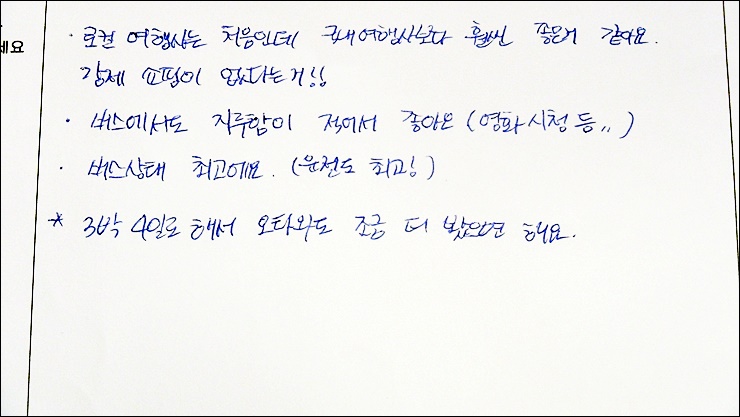 세요
· 로컬 여행사는 처음인데 국내여행사보다 훨씬 좋은거 같아요.
강제 쇼핑이 없다는거!!
· 버스에서도 지루함이 적어서 좋아요 (영화시청 등..)
· 버스상태 최고에요. (운전도 최고!)
* 3박 4일로 해서 오타와도 조금 더 봤으면 해요.